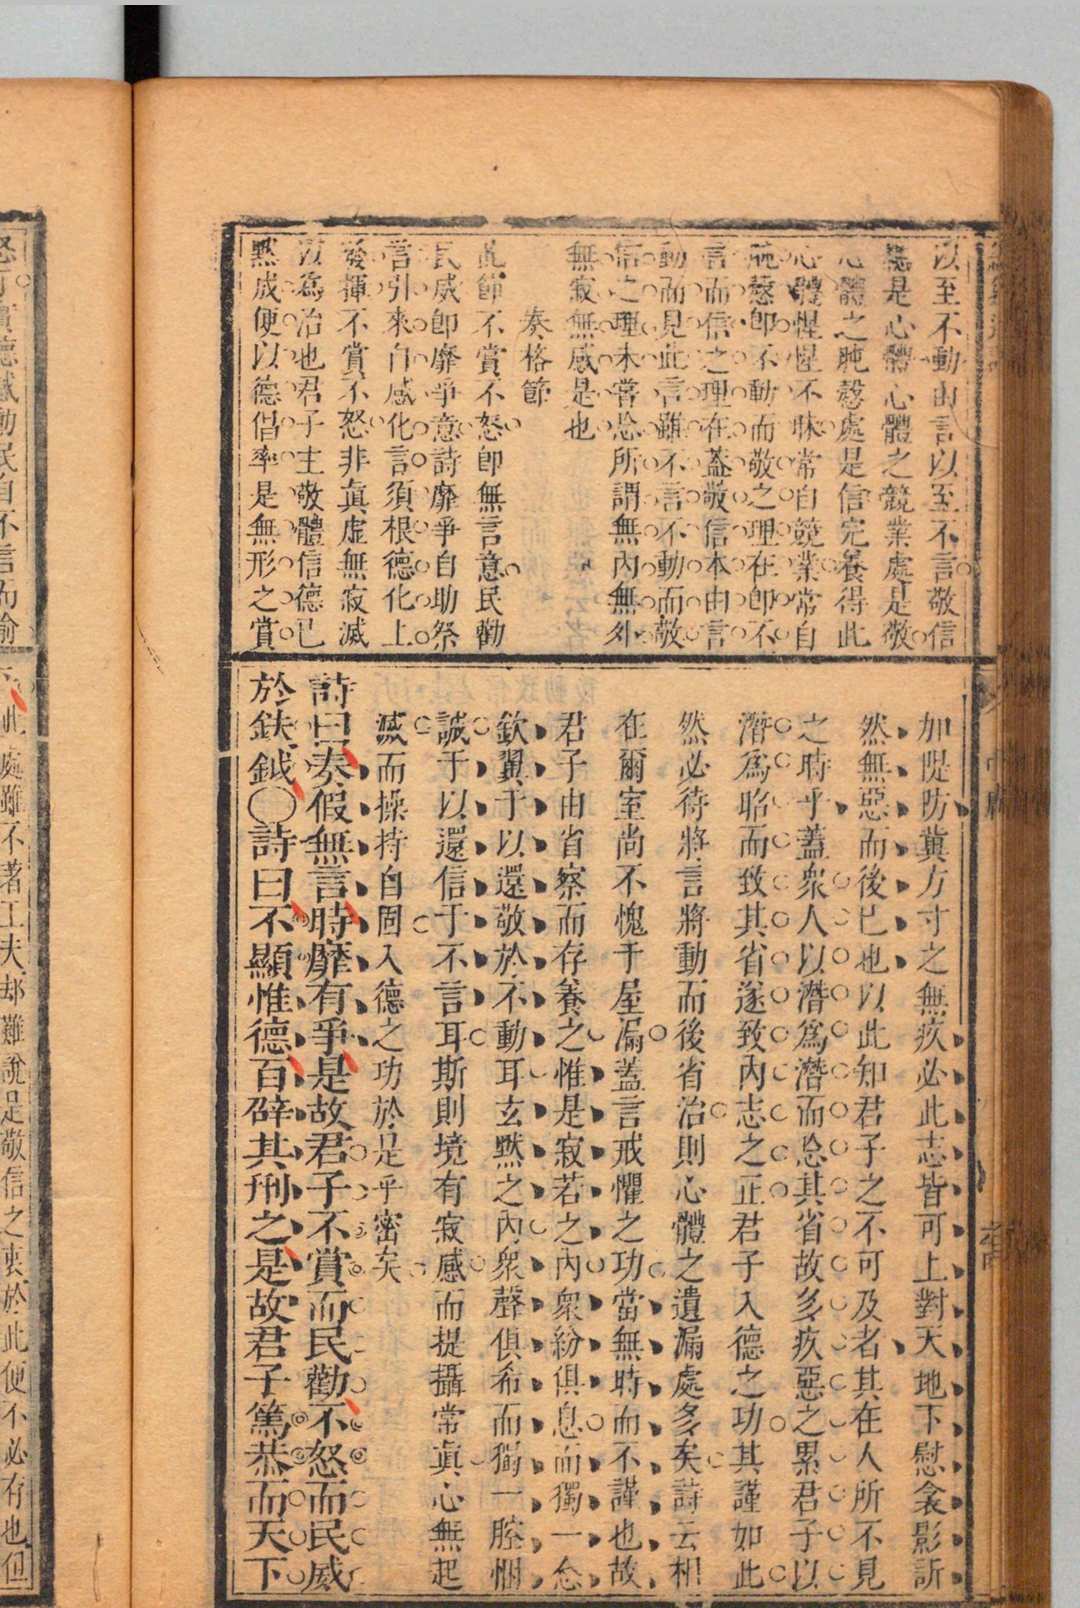 以至不動由言以至不言敬信
總是心體心體之競業處是敬
心體之肫慤處是信完養得此
心體惺惺不昧常自競業常自
肫慤卽不動而敬之理在卽不
言而信之理在蓋敬信本由言
動而見此言雖不言不動而敬
信之理未嘗忩所謂無內無外
無寂無感是也
奏格節
此節不賞不怒卽無言意民勸
民威卽靡爭意詩靡爭自助祭
言引來自感化言須根德化上
發揮不賞不怒非眞虛無寂滅
以爲治也君子主敬體信德已
默成便以德倡率是無形之賞
加隄防冀方寸之無疚必此志皆可上對天地下慰衾影訢
然無惡而後已也以此知君子之不可及者其在人所不見
之時乎蓋衆人以潛爲潛而忩其省故多疚惡之累君子以
潛爲昭而致其省遂致內志之正君子入德之功其謹如此
然必待將言將動而後省治則心體之遺漏處多矣詩云相
在爾室尚不愧于屋漏蓋言戒懼之功當無時而不謹也故
君子由省察而存養之惟是寂若之內衆紛俱息而獨一念
欽翼于以還敬於不動耳玄默之內衆聲俱希而獨一腔悃
誠于以還信于不言耳斯則境有寂感而提攝常眞心無起
滅而操持自固入德之功於是乎密矣
詩曰奏假無言時靡有爭是故君子不賞而民勸不怒而民威
於鈇鉞○詩曰不顯惟德百辟其刑之是故君子篤恭而天下
此處雖不著工夫却難說足敬信之衷於此便不必有也但